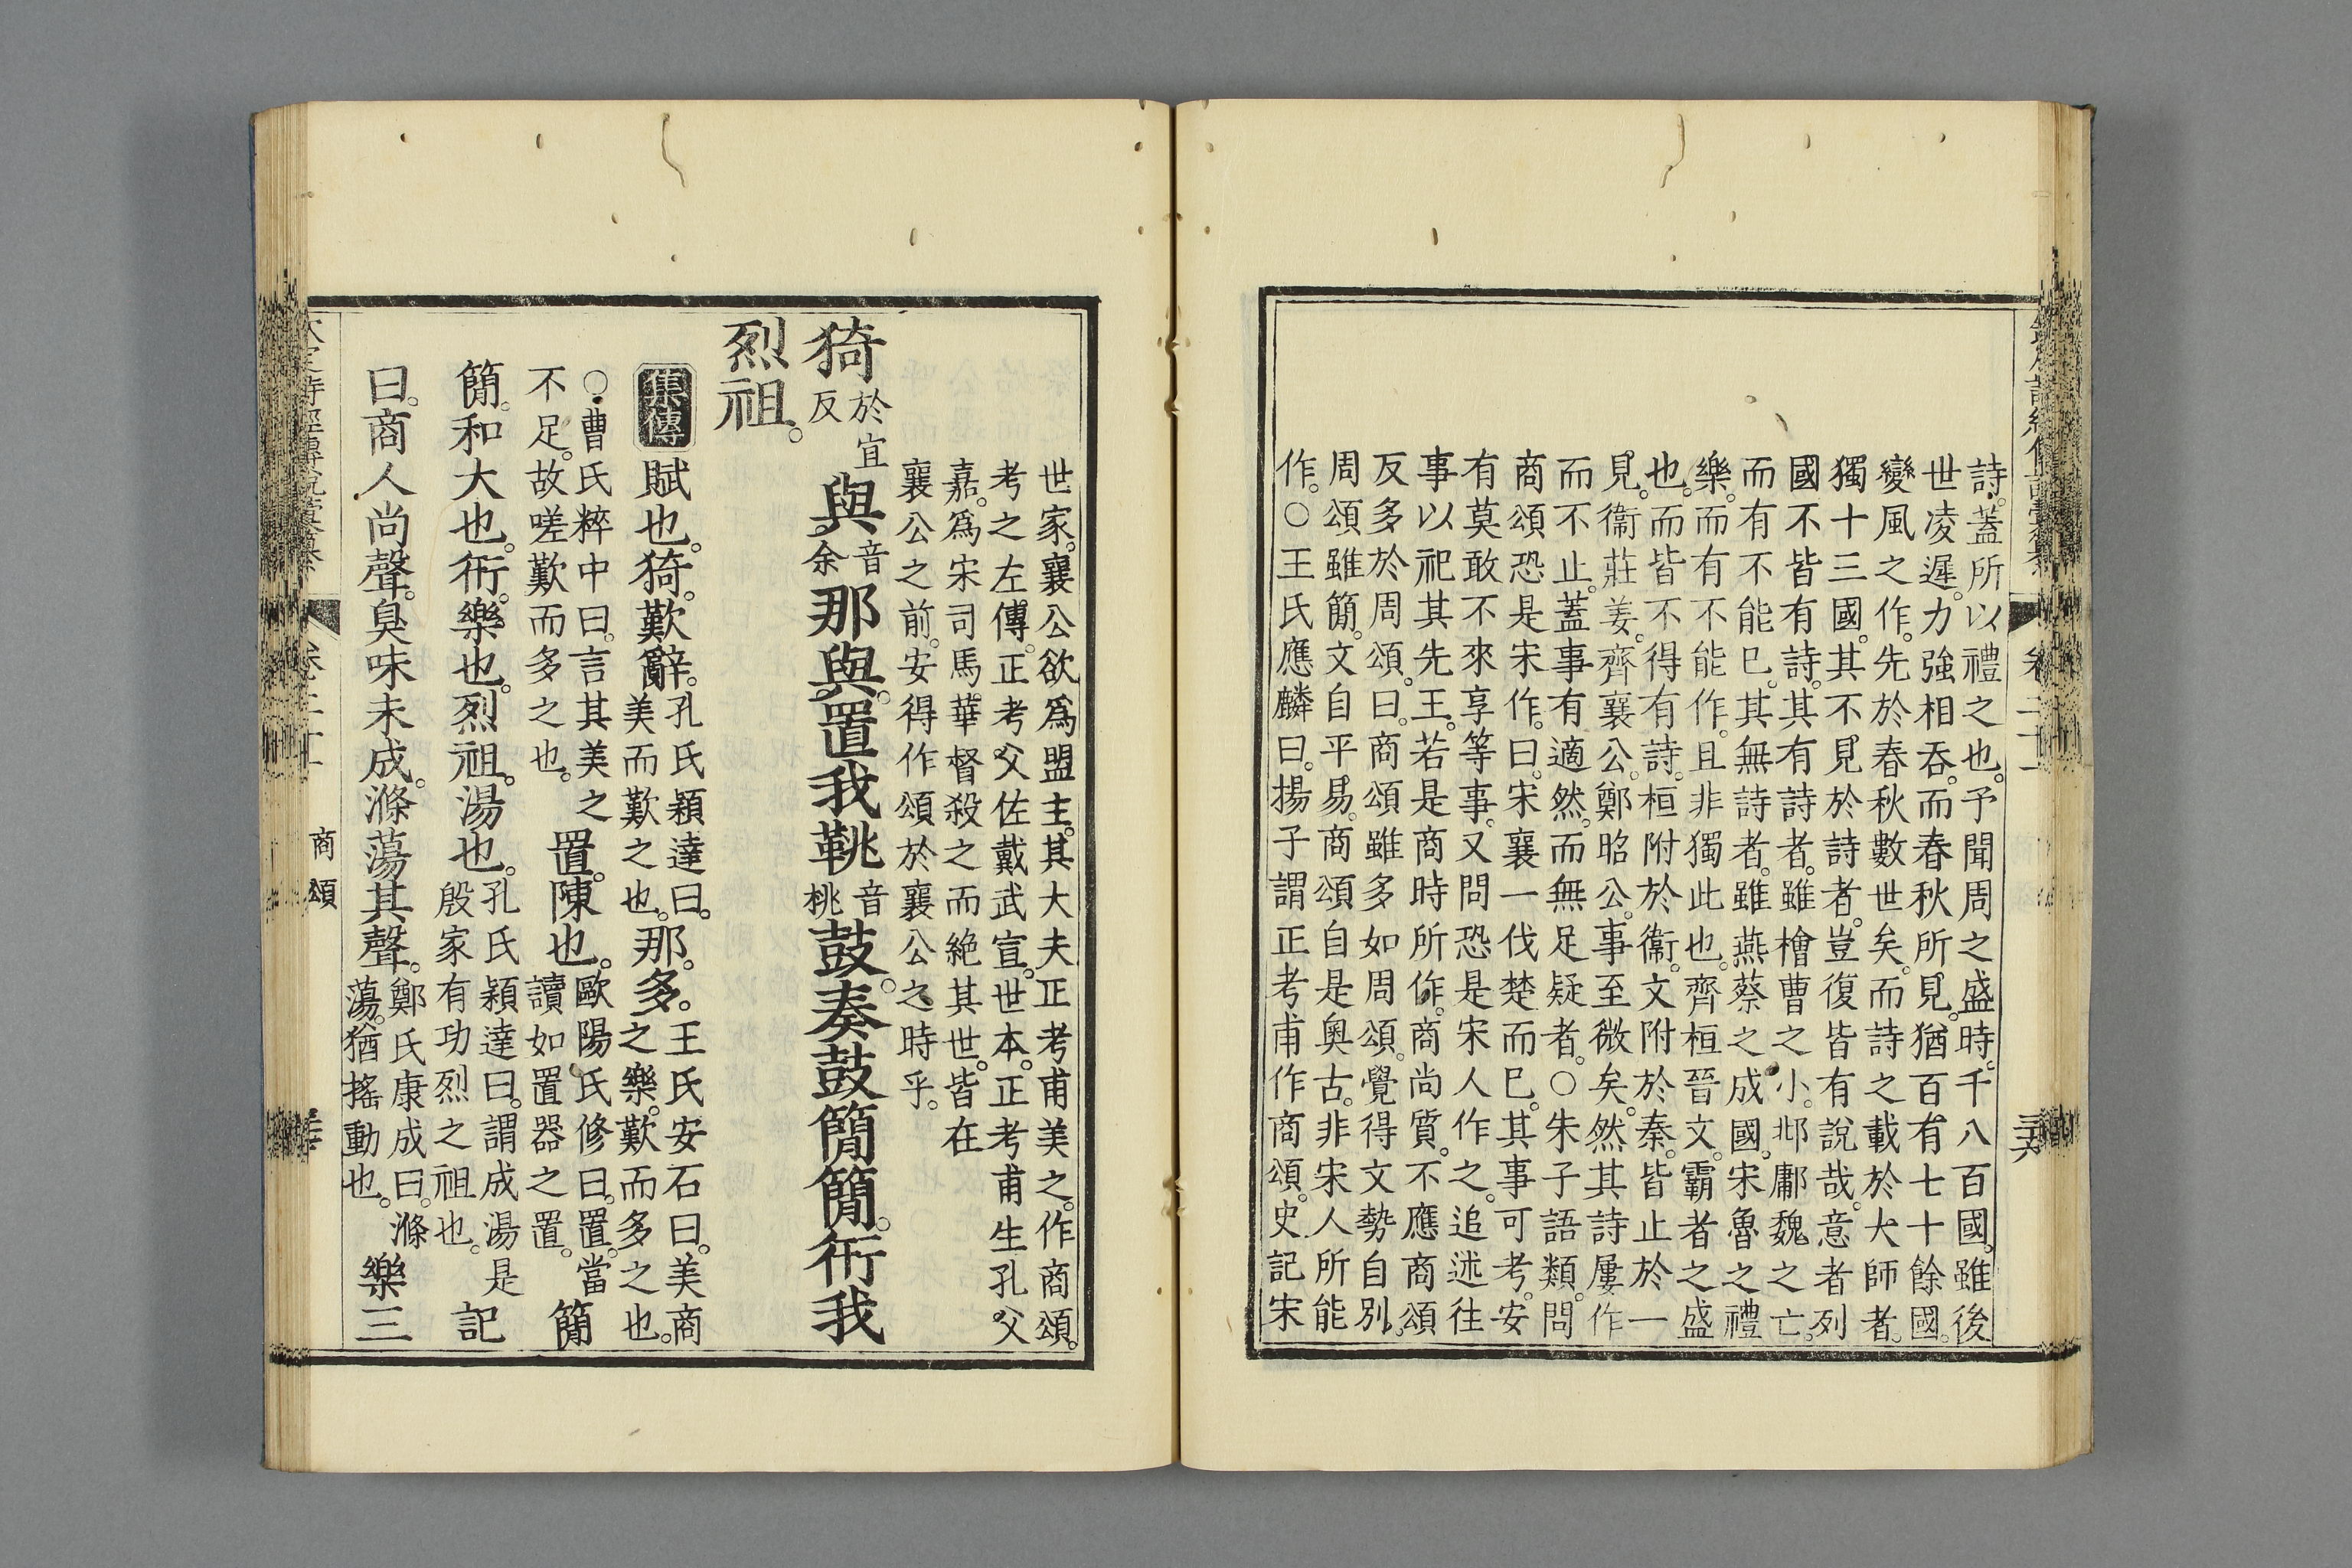 詩。蓋所以禮之也。予聞周之盛時。千八百國。雖後
世凌遲。力強相吞。而春秋所見。猶百有七十餘國。
變風之作。先於春秋數世矣。而詩之載於大師者。
獨十三國。其不見於詩者。豈復皆有說哉。意者列
國不皆有詩。其有詩者。雖檜曹之小。邶鄘魏之亡。
而有不能已。其無詩者。雖燕蔡之成國。宋魯之禮
樂。而有不能作。且非獨此也。齊桓晉文。霸者之盛
也。而皆不得有詩。桓附於衞。文附於秦。皆止於一
見。衞莊姜。齊襄公。鄭昭公。事至微矣。然其詩屢作
而不止。蓋事有適然。而無足疑者。○朱子語類。問
商頌恐是宋作。曰。宋襄一伐楚而已。其事可考。安
有莫敢不來享等事。又問恐是宋人作之。追述往
事以祀其先王。若是商時所作。商尚質。不應商頌
反多於周頌。曰。商頌雖多如周頌。覺得文勢自別。
周頌雖簡。文自平易。商頌自是奧古。非宋人所能
作。○王氏應麟曰。揚子謂正考甫作商頌。史記宋
卷二十一
世家。襄公欲爲盟主。其大夫正考甫美之。作商頌。
考之左傳。正考父佐戴武宣。世本。正考甫生孔父
嘉。爲宋司馬。華督殺之而絶其世。皆在
襄公之前。安得作頌於襄公之時乎。
猗於宜反與音余那與。置我鞉音桃鼓。奏鼓簡簡。衎我
烈祖。
集傳 賦也。猗。歎辭。孔氏穎達曰。美而歎之也。那。多。王氏安石曰。美商之樂。歎而多之也。
○曹氏粹中曰。言其美之不足。故嗟歎而多之也。置。陳也。歐陽氏修曰。置。當讀如置器之置。簡
簡。和大也。衎。樂也。烈祖。湯也。孔氏穎達曰。謂成湯是殷家有功烈之祖也。記
曰。商人尚聲。臭味未成。滌蕩其聲。鄭氏康成曰。滌蕩。猶搖動也。樂三
商頌